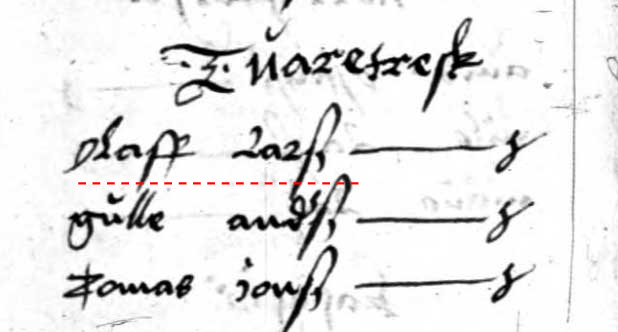 Tuaretresk
Olaff Larß
gulle andß
Tomas jonß